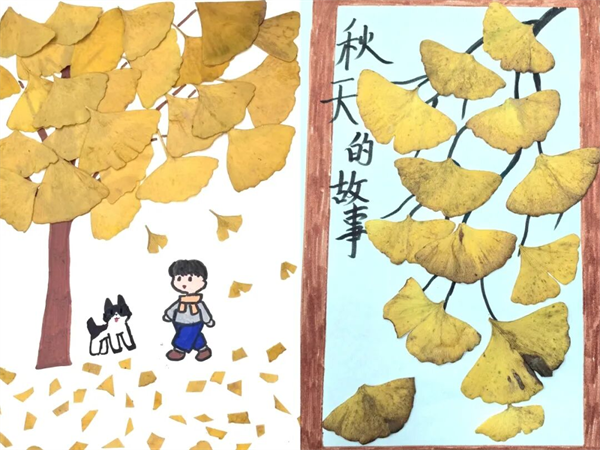 秋天的故事